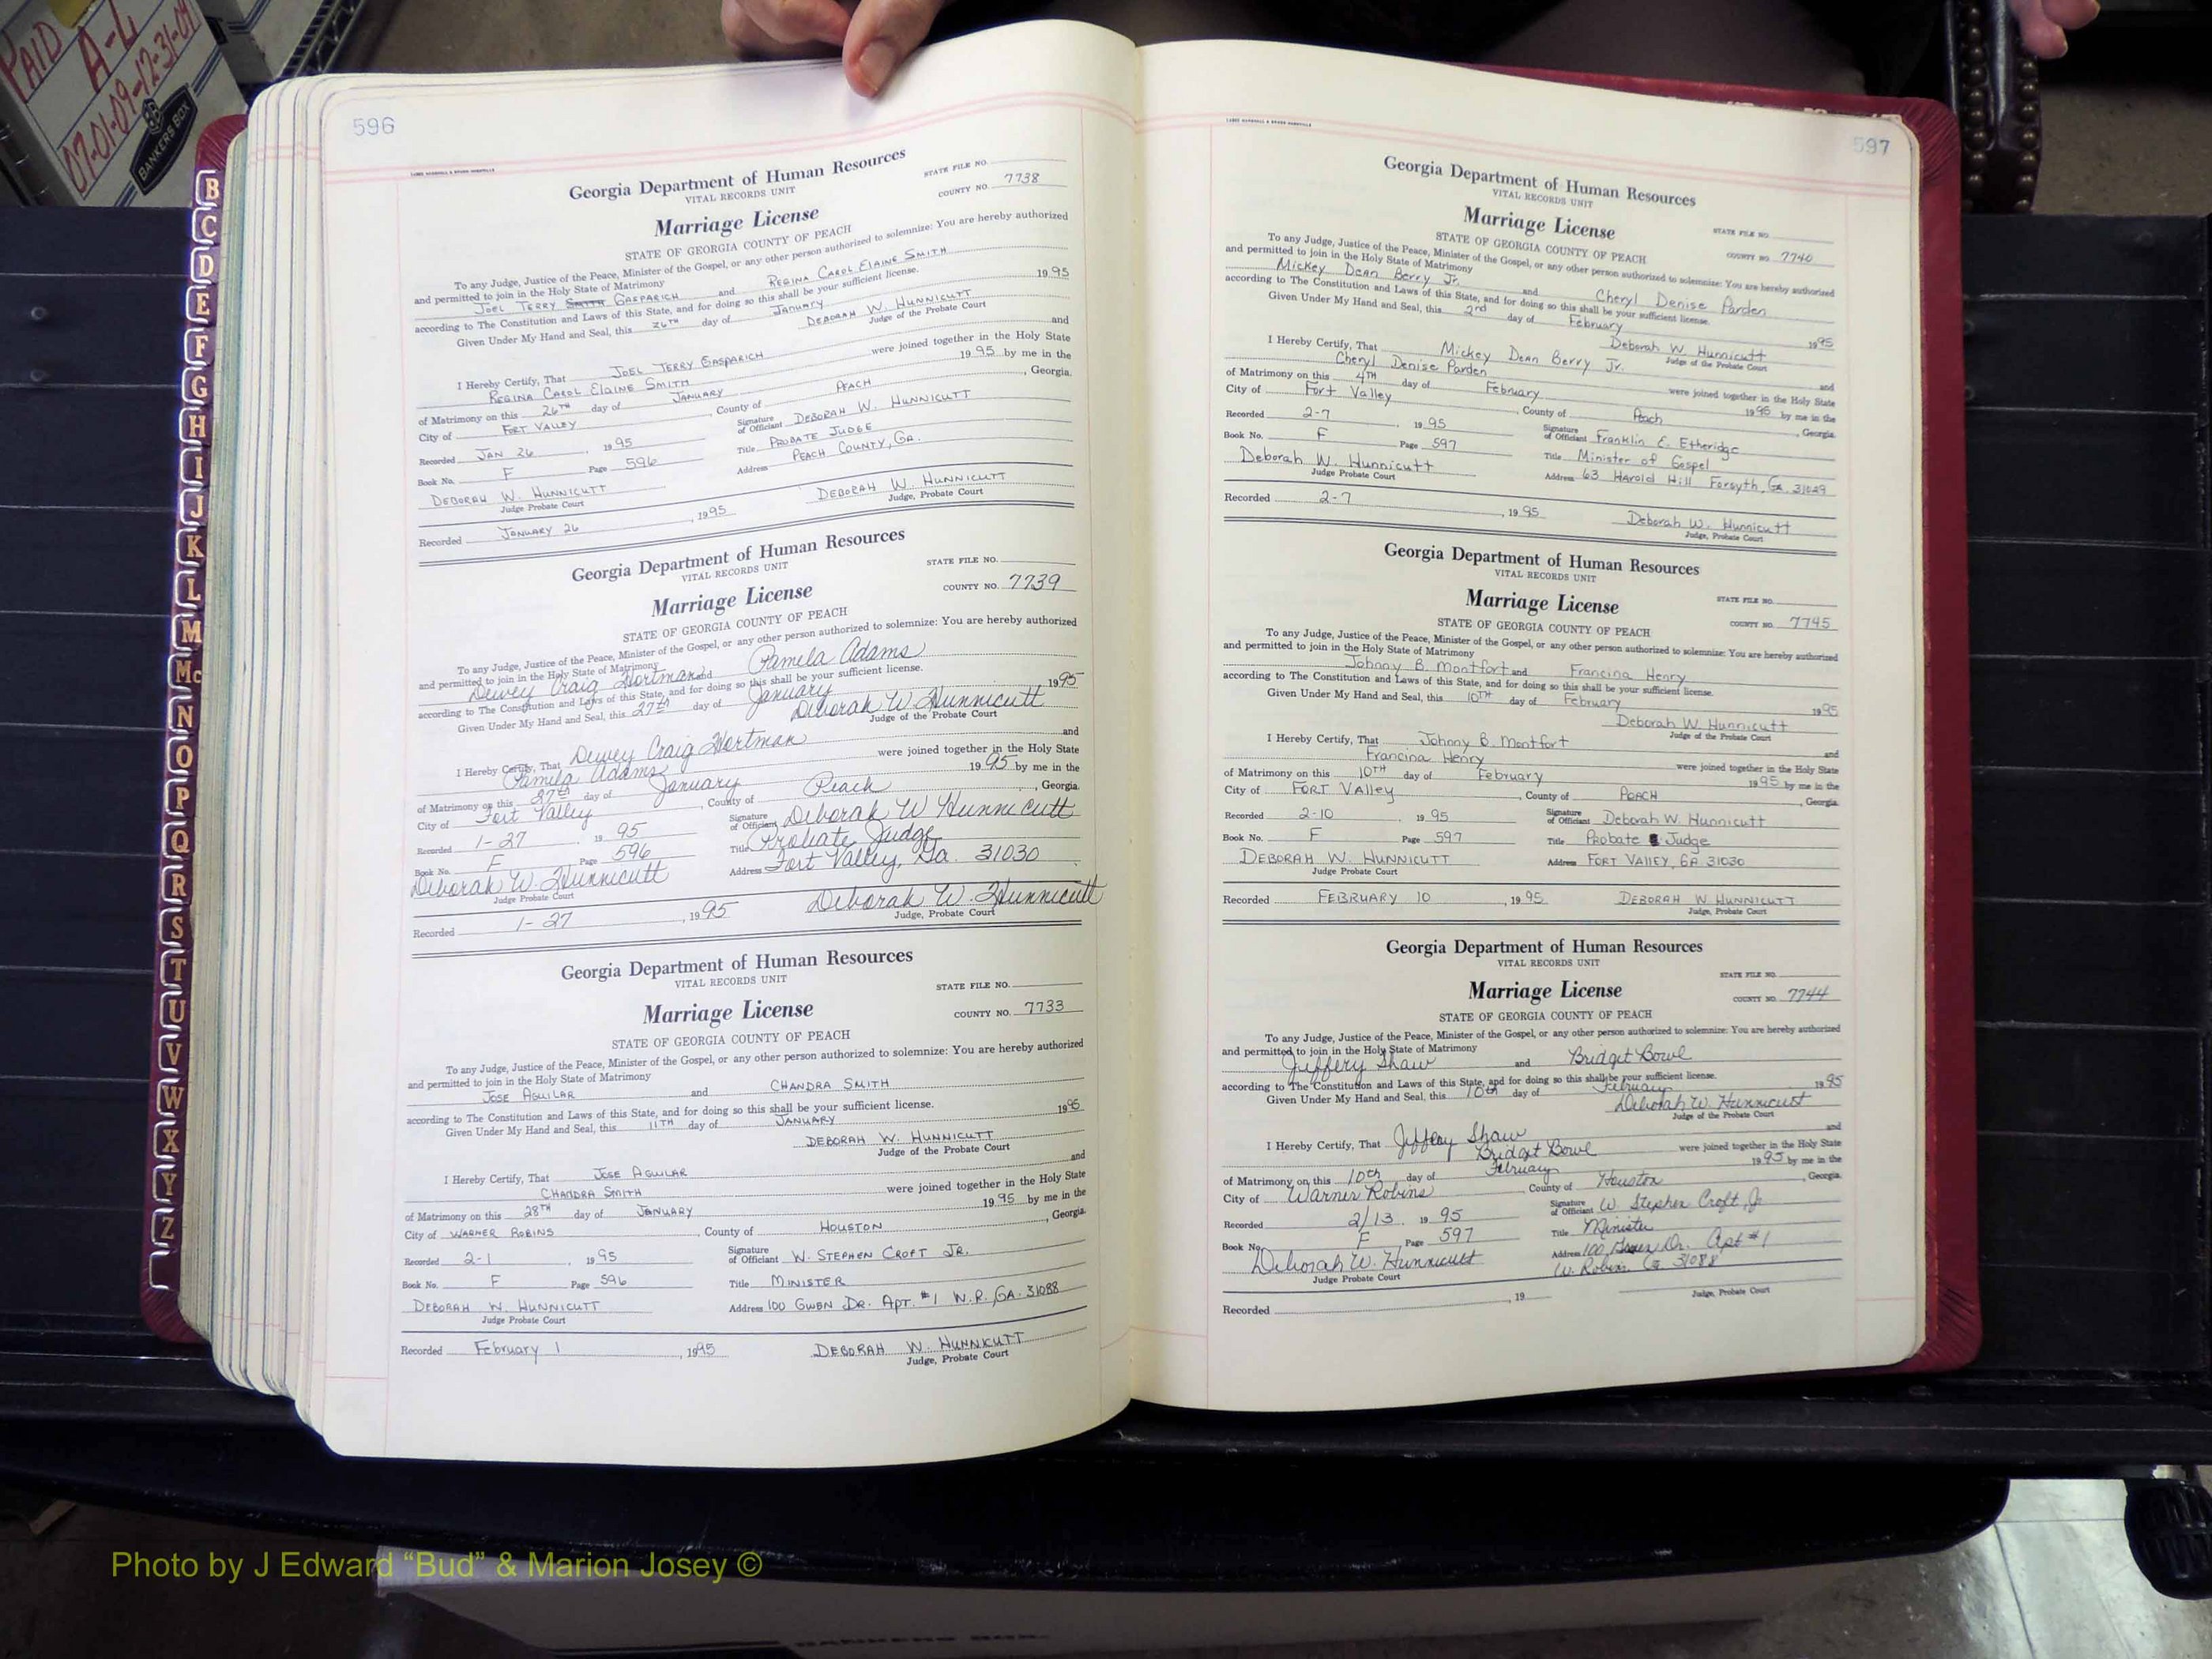 PAID
A-L
07-01-09-12-31-09
BANKERS BOX
B
C
D
E
F
G
H
I
J
K
L
M
Mc
N
O
P
Q
R
S
T
U
V
W
X
Y
Z
596
Georgia Department of Human Resources
VITAL RECORDS UNIT
STATE FILE NO.
COUNTY NO. 7738
Marriage License
STATE OF GEORGIA COUNTY OF PEACH
To any Judge, Justice of the Peace, Minister of the Gospel, or any other person authorized to solemnize: You are hereby authorized
and permitted to join in the Holy State of Matrimony
JOEL TERRY SMITH GASPARICH and REGINA CAROL ELAINE SMITH
according to The Constitution and Laws of this State, and for doing so this shall be your sufficient license.
Given Under My Hand and Seal, this 26TH day of JANUARY 1995
DEBORAH W. HUNNICUTT
Judge of the Probate Court
I Hereby Certify, That JOEL TERRY GASPARICH and
REGINA CAROL ELAINE SMITH were joined together in the Holy State
of Matrimony on this 26TH day of JANUARY 1995 by me in the
City of FORT VALLEY, County of PEACH, Georgia.
Recorded JAN 26, 1995 Signature of Officiant DEBORAH W. HUNNICUTT
Book No. F Page 596 Title PROBATE JUDGE
DEBORAH W. HUNNICUTT Address PEACH COUNTY, GA.
Judge Probate Court
Recorded JANUARY 26, 1995 DEBORAH W. HUNNICUTT
Judge, Probate Court
Georgia Department of Human Resources
VITAL RECORDS UNIT
STATE FILE NO.
COUNTY NO. 7739
Marriage License
STATE OF GEORGIA COUNTY OF PEACH
To any Judge, Justice of the Peace, Minister of the Gospel, or any other person authorized to solemnize: You are hereby authorized
and permitted to join in the Holy State of Matrimony
Dewey Craig Hortman and Pamela Adams
according to The Constitution and Laws of this State, and for doing so this shall be your sufficient license.
Given Under My Hand and Seal, this 27th day of January 1995
Deborah W. Hunnicutt
Judge of the Probate Court
I Hereby Certify, That Dewey Craig Hortman and
Pamela Adams were joined together in the Holy State
of Matrimony on this 27th day of January 1995 by me in the
City of Fort Valley, County of Peach, Georgia.
Recorded 1-27, 1995 Signature of Officiant Deborah W Hunnicutt
Book No. F Page 596 Title Probate Judge
Deborah W. Hunnicutt Address Fort Valley, Ga. 31030
Judge Probate Court
Recorded 1-27, 1995 Deborah W. Hunnicutt
Judge, Probate Court
Georgia Department of Human Resources
VITAL RECORDS UNIT
STATE FILE NO.
COUNTY NO. 7733
Marriage License
STATE OF GEORGIA COUNTY OF PEACH
To any Judge, Justice of the Peace, Minister of the Gospel, or any other person authorized to solemnize: You are hereby authorized
and permitted to join in the Holy State of Matrimony
JOSE AGUILAR and CHANDRA SMITH
according to The Constitution and Laws of this State, and for doing so this shall be your sufficient license.
Given Under My Hand and Seal, this 11TH day of JANUARY 1995
DEBORAH W. HUNNICUTT
Judge of the Probate Court
I Hereby Certify, That JOSE AGUILAR and
CHANDRA SMITH were joined together in the Holy State
of Matrimony on this 28TH day of JANUARY 1995 by me in the
City of WARNER ROBINS, County of HOUSTON, Georgia.
Recorded 2-1, 1995 Signature of Officiant W. STEPHEN CROFT JR.
Book No. F Page 596 Title MINISTER
DEBORAH W. HUNNICUTT Address 100 GWEN DR. APT. #1 W.R., GA. 31088
Judge Probate Court
Recorded February 1, 1995 DEBORAH W. HUNNICUTT
Judge, Probate Court
597
Georgia Department of Human Resources
VITAL RECORDS UNIT
Marriage License
STATE FILE NO.
STATE OF GEORGIA COUNTY OF PEACH
COUNTY NO. 7740
To any Judge, Justice of the Peace, Minister of the Gospel, or any other person authorized to solemnize: You are hereby authorized
and permitted to join in the Holy State of Matrimony
Mickey Dean Berry Jr. and Cheryl Denise Parden
according to The Constitution and Laws of this State, and for doing so this shall be your sufficient license.
Given Under My Hand and Seal, this 2nd day of February 1995
Deborah W. Hunnicutt
Judge of the Probate Court
I Hereby Certify, That Mickey Dean Berry Jr. and
Cheryl Denise Parden were joined together in the Holy State
of Matrimony on this 4TH day of February 1995 by me in the
City of Fort Valley, County of Peach, Georgia.
Recorded 2-7, 1995 Signature of Officiant Franklin E. Etheridge
Book No. F Page 597 Title Minister of Gospel
Deborah W. Hunnicutt Address 63 Harold Hill Forsyth, Ga. 31029
Judge Probate Court
Recorded 2-7, 1995 Deborah W. Hunnicutt
Judge, Probate Court
Georgia Department of Human Resources
VITAL RECORDS UNIT
Marriage License
STATE FILE NO.
STATE OF GEORGIA COUNTY OF PEACH
COUNTY NO. 7745
To any Judge, Justice of the Peace, Minister of the Gospel, or any other person authorized to solemnize: You are hereby authorized
and permitted to join in the Holy State of Matrimony
Johnny B. Montfort and Francina Henry
according to The Constitution and Laws of this State, and for doing so this shall be your sufficient license.
Given Under My Hand and Seal, this 10TH day of February 1995
Deborah W. Hunnicutt
Judge of the Probate Court
I Hereby Certify, That Johnny B. Montfort and
Francina Henry were joined together in the Holy State
of Matrimony on this 10TH day of February 1995 by me in the
City of FORT VALLEY, County of PEACH, Georgia.
Recorded 2-10, 1995 Signature of Officiant Deborah W. Hunnicutt
Book No. F Page 597 Title Probate Judge
DEBORAH W. HUNNICUTT Address FORT VALLEY, GA 31030
Judge Probate Court
Recorded FEBRUARY 10, 1995 DEBORAH W HUNNICUTT
Judge, Probate Court
Georgia Department of Human Resources
VITAL RECORDS UNIT
STATE FILE NO.
Marriage License
COUNTY NO. 7744
STATE OF GEORGIA COUNTY OF PEACH
To any Judge, Justice of the Peace, Minister of the Gospel, or any other person authorized to solemnize: You are hereby authorized
and permitted to join in the Holy State of Matrimony
Jeffery Shaw and Bridget Bowl
according to The Constitution and Laws of this State, and for doing so this shall be your sufficient license.
Given Under My Hand and Seal, this 10th day of February 1995
Deborah W. Hunnicutt
Judge of the Probate Court
I Hereby Certify, That Jeffery Shaw and
Bridget Bowl were joined together in the Holy State
of Matrimony on this 10th day of February 1995 by me in the
City of Warner Robins, County of Houston, Georgia.
Recorded 2/13, 1995 Signature of Officiant W. Stephen Croft, Jr
Book No. F Page 597 Title Minister
Deborah W. Hunnicutt Address 100 Dr. Apt #1
Judge Probate Court W. Robins Ga 31088
Recorded , 19
Judge, Probate Court
Photo by J Edward “Bud” & Marion Josey ©